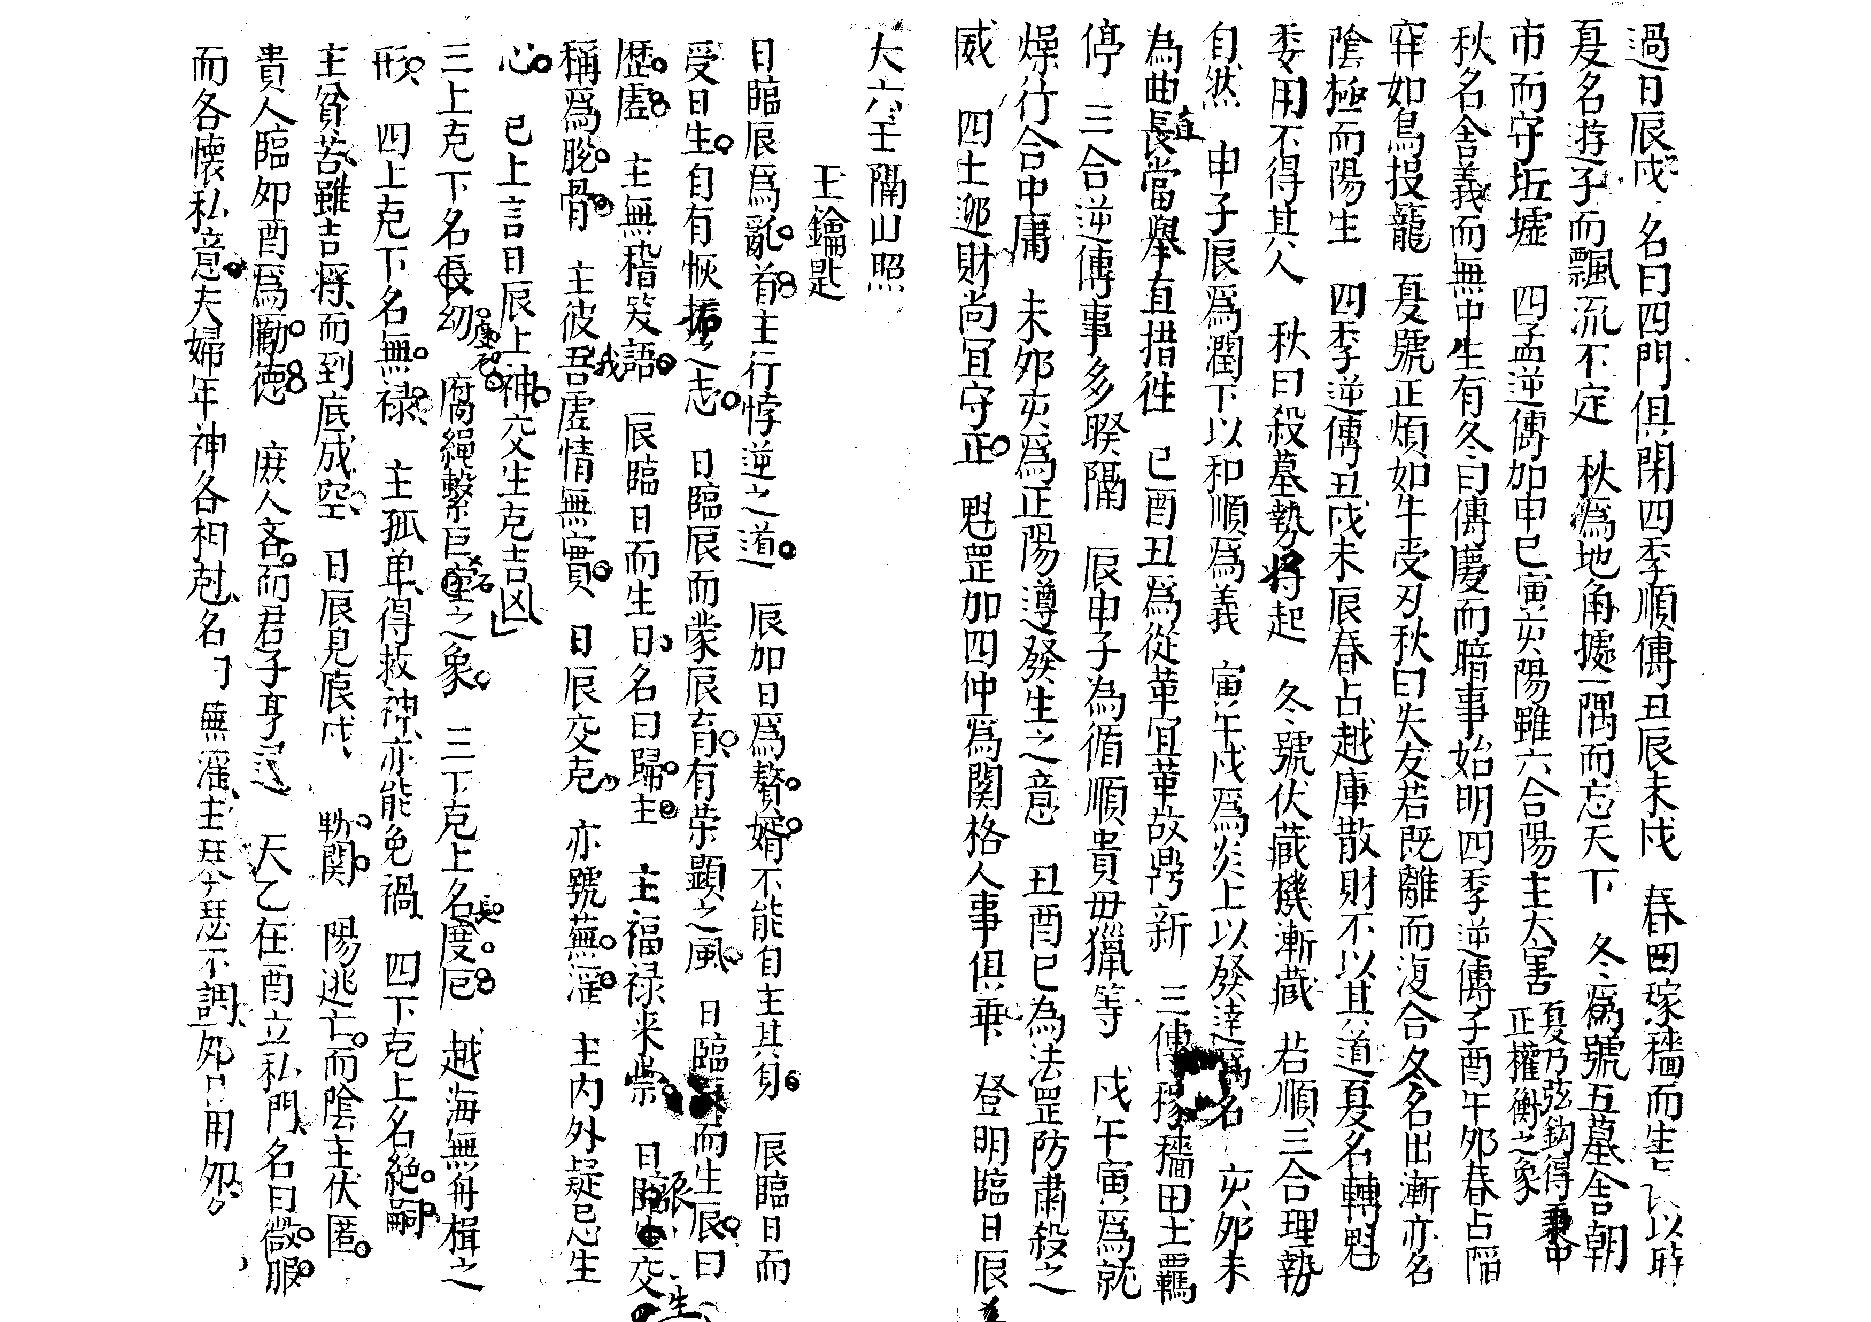 過日辰戌 名曰四門俱閉四季順傳丑辰未戌 春曰稼穡而生 以時
夏名遊子而飄流不定 秋為地角據一隅而忘天下 冬為號五墓舍朝
市而守坵墟 四孟逆傳加申巳寅亥陽雖六合陽主大害 夏乃弦鈎得秉中正權衡之象
秋名舍義而無中生有冬曰傳慶而暗事始明四季逆傳子酉午夘春占陷
穽如鳥投籠 夏號正煩如牛受刃秋曰失友若既離而復合冬名出漸亦名
陰極而陽生 四季逆傳丑戌未辰春占越庫散財不以其道夏名轉魁
委用不得其人 秋曰殺墓勢将起 冬號伏蔵機漸蔵 若順三合理勢
自然 申子辰爲潤下以和順爲義 寅午戌爲炎上以發達爲名 亥夘未
為曲直長當舉直措徃 巳酉丑爲從革宜革故鼎新 三傳稼穡田土羈
停 三合逆傳事多睽隔 辰申子為循順貴毋獵等 戌午寅爲就
燥行合中庸 未夘亥爲正陽遵發生之意 丑酉巳為法罡防肅殺之
威 四土遞財尚冝守正 魁罡加四仲爲関格人事俱乖 登明臨日辰
大六壬隔山照
玉鑰匙
日臨辰爲亂首主行悖逆之道 辰加日爲贅婿不能自主其身 辰臨日而
受日生自有恢振之志 日臨辰而蒙辰育有荣顯之風 日臨辰而生辰曰
歴虛 主無稽笑語 辰臨日而生日名曰歸主 主福禄来崇 日辰交生
稱爲脫骨 主彼吾我虛情無實 日辰交克 亦號蕪淫 主内外疑忌生
心 已上言日辰上神交生克吉凶
三上克下名長幼 腐縄繫巨之象 三下克上名長度厄 越海無舟楫之
形 四上克下名無禄 主孤单得救神亦能免禍 四下克上名絶嗣
主貧苦雖吉将而到底成空 日辰見辰戌 勒関 陽逃亡而陰主伏匿
貴人臨夘酉爲勵德 庶人吝而君子亨 天乙在酉立私門名曰微服
而各懐私意夫婦年神各相尅名曰蕪淫主琴瑟不調夘日用夘